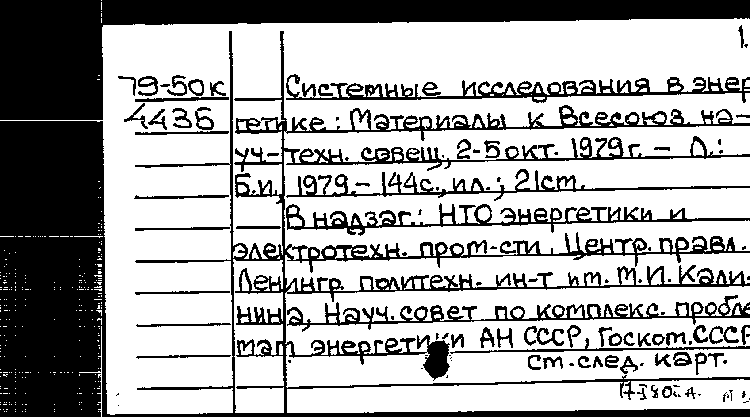 1.
79-50к Системные исследования в энер
4436 гетике: Материалы к Всесоюз. на-
уч-техн. совещ., 2-5 окт. 1979 г. – Л.:
Б.и., 1979.- 144с., ил.; 21см.
В надзаг.: НТО энергетики и
электротехн. пром-сти. Центр. правл.
Ленингр. политехн. ин-т им. М.И. Кали-
нина, Науч. совет по комплекс. пробле
мам энергетики АН СССР, Госком. СССР
см. след. карт.